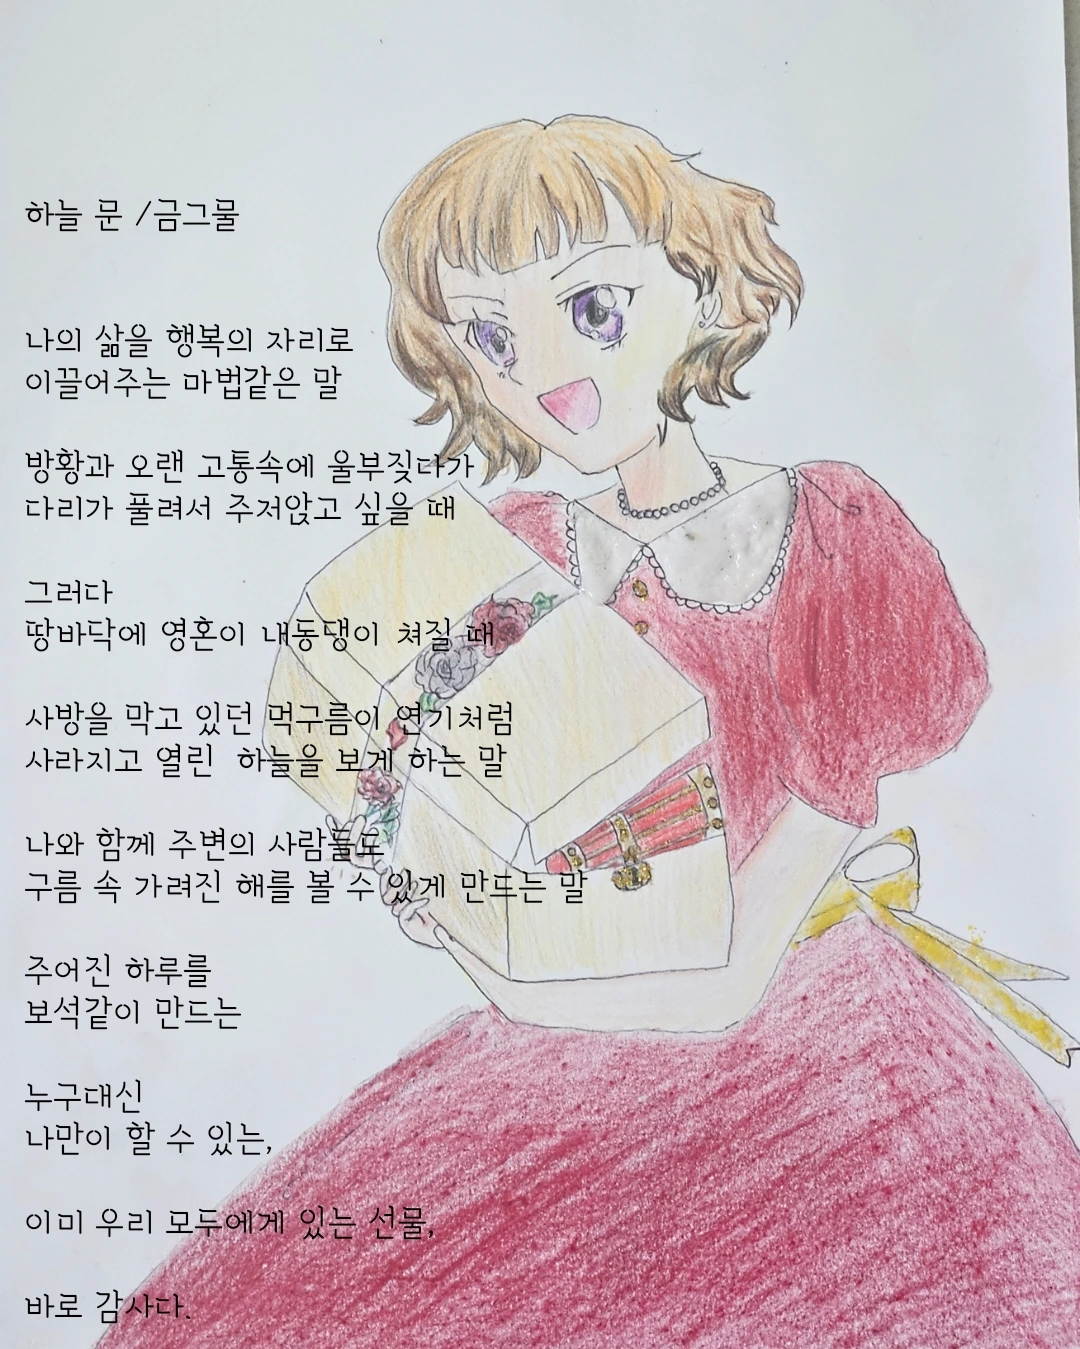 하늘 문 /금그물
나의 삶을 행복의 자리로
이끌어주는 마법같은 말
방황과 오랜 고통속에 울부짖다가
다리가 풀려서 주저앉고 싶을 때
그러다
땅바닥에 영혼이 내동댕이 쳐질 때
사방을 막고 있던 먹구름이 연기처럼
사라지고 열린 하늘을 보게 하는 말
나와 함께 주변의 사람들도
구름 속 가려진 해를 볼 수 있게 만드는 말
주어진 하루를
보석같이 만드는
누구대신
나만이 할 수 있는,
이미 우리 모두에게 있는 선물,
바로 감사다.